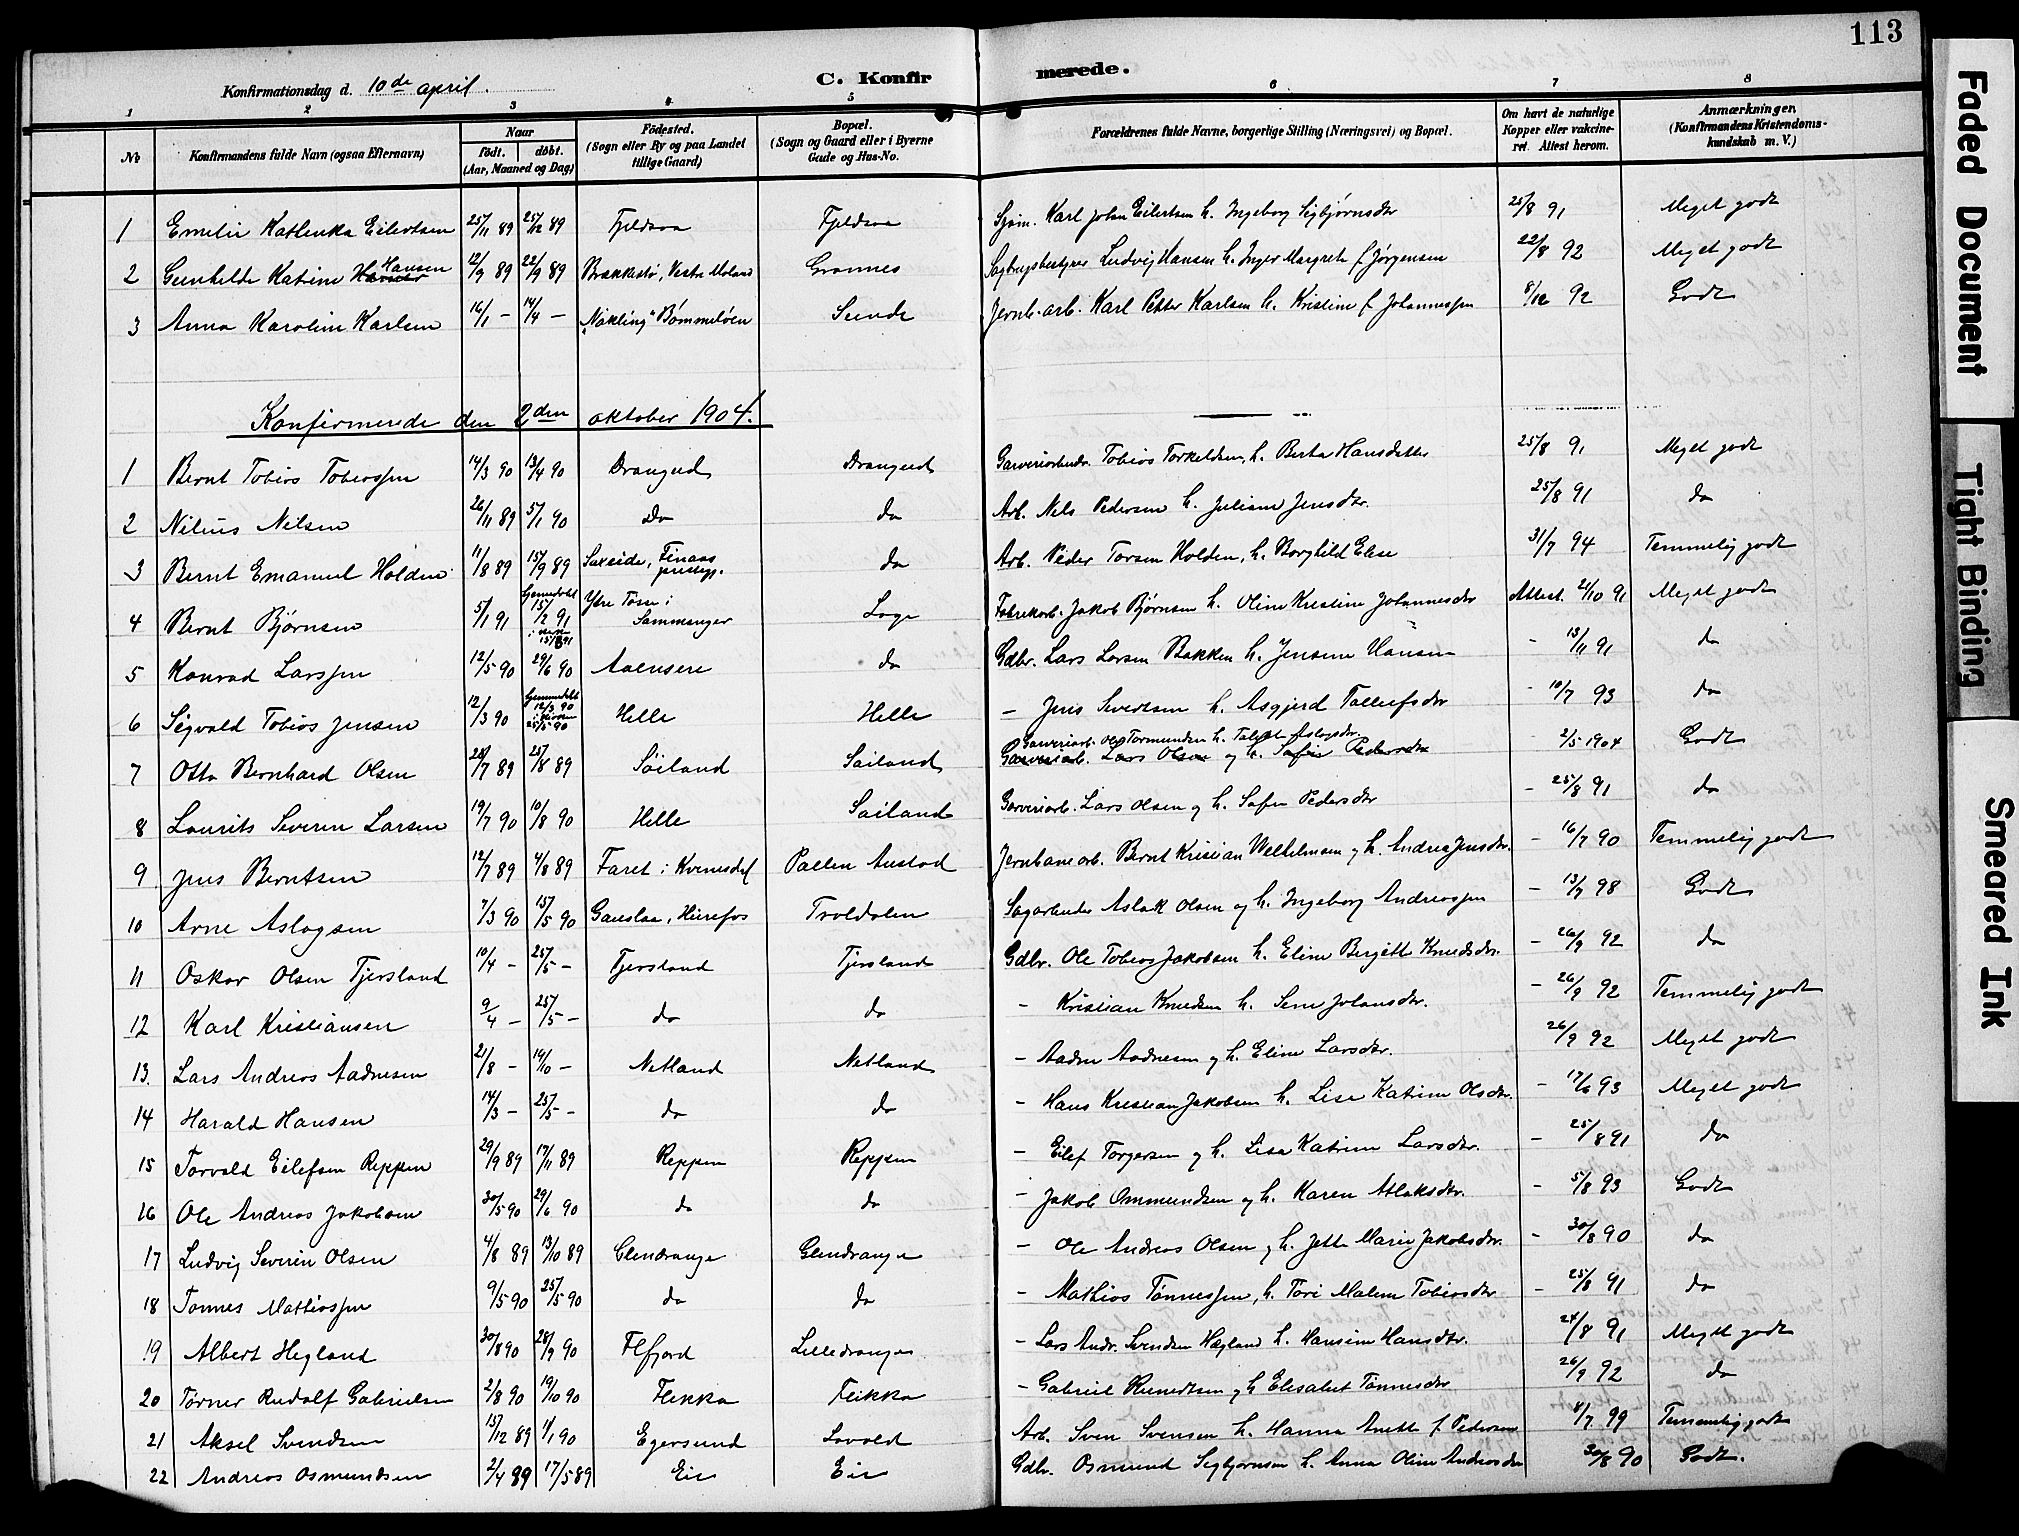 113
Konfirmationsdag d. 10de april.
C. Konfirmerede.
1 2 3 4 5 6 7 8
No
Konfirmandens fulde Navn (ogsaa Efternavn)
Naar
født. døbt.
(Aar, Maaned og Dag)
Födested.
(Sogn eller By og paa Landet
tillige Gaard)
Bopæl.
(Sogn og Gaard eller i Byerne
Gade og Hus-No.
Forældrenes fulde Navne, borgerlige Stilling (Næringsvei) og Bopæl.
Om havt de naturlige
Kopper eller vakcine-
ret. Attest herom.
Anmærkninger.
(Konfirmandens Kristendoms-
kundskab m. V.)
1 Emilie Kathenka Eilertsen 25/11 89 25/12 89 Fjeldsaa Fjeldsaa Sjøm. Karl Johan Eilertsen h. Ingeborg Sigbjørnsdtr 25/8 91 Meget godt
2 Gunhilde Katrine Hansen 12/9 89 22/9 89 Brekkestø, Vestre Moland Grannes Sagbrugsbestyrer Ludvig Hansen h. Inger Margrete f. Jørgensen 22/8 92 Meget godt
3 Anna Karoline Karlsen 16/1 - 14/4 - "Nøkling" Bømmeløen Sunde Jernb.arb. Karl Petter Karlsen h. Kristine f. Johannessen 8/12 92 Godt
Konfirmerede den 2den oktober 1904.
1 Bernt Tobias Tobiassen 14/3 90 13/4 90 Drangeid Drangeid Garveriarbeider Tobias Torkeldsen, h. Berta Hansdatter 25/8 91 Meget godt
2 Nilius Nilsen 26/11 89 5/1 90 Do do Arb. Nels Pedersen h. Juliane Jensdtr. 25/8 91 do
3 Bernt Emanuel Holden 11/8 89 15/9 89 Saxeide, Finaas prestegj. do Arb. Peder Torsen Holden, h. Borghild Elise 31/7 94 Temmelig godt
4 Bernt Bjørnsen 5/1 91 hjemmedøbt 15/2 91 i kirken 15/3 91 Ytre Tosse i Sammanger Loge Fabrikarb. Jakob Bjørnsen h. Oline Kristine Johannesdtr Attest. 21/10 91 Meget godt
5 Konrad Larssen 12/5 90 29/6 90 Aalensere do Gdbr. Lars Larsen Bakken h. Jensine Hansen - 13/11 91 do
6 Sigvald Tobias Jensen 12/3 90 hjemmedøbt 12/3 90 i kirken 25/5 90 Helle Helle - Jens Sivertsen h. Asgjerd Tallefsdtr - 10/7 93 do
7 Otto Bernhard Olsen 28/7 89 25/8 89 Söiland Søiland Garveriarb. Ole Tormundsen h. Talette Aslagsdtr. Garveriarb. Lars Olsen og h. Sofie Pedersdtr - 2/5 1904 Godt
8 Laurits Severin Larsen 19/7 90 10/8 90 Helle Søiland Garveriarb. Lars Olsen og h. Sofie Pedersdtr - 25/8 91 do
9 Jens Berntsen 12/7 89 4/8 89 Faret i Kvinesdal Pallen Austad Jernbanearb. Bernt Kristian Welhelmsen og h. Andrea Jensdtr. - 16/7 90 Temmelig godt
10 Arne Aslagsen 7/3 90 15/5 90 Gauslaa, Hirefos Troldalen Sagarbeider Aslak Olsen og h. Ingeborg Andreassen - 13/7 98 Godt
11 Oskar Olsen Tjersland 10/4 - 25/5 - Tjersland Tjersland Gdbr. Ole Tobias Jakobsen h. Eline Bergitte Knudsdtr. - 26/9 92 do
12 Karl Kristiansen 9/4 - 25/5 - do do - Kristian Knudsen h. Sine Johansdtr. - 26/9 92 Temmelig godt
13. Lars Andreas Aadnesen 21/8 - 19/10 - Netland Netland - Aadne Aadnesen og h. Eline Larsdtr. 26/9 92 Meget godt
14 Harald Hansen 14/3 - 25/5 - do do - Hans Kristian Jakobsen h. Lise Katrine Olsdtr. - 17/6 93 Meget godt
15 Torvald Eilefsen Reppen 29/9 89 17/11 89 Reppen Reppen - Eilef Torgersen og h. Lisa Katrine Larsdtr. - 25/8 91 do
16 Ole Andreas Jakobsen 30/5 90 29/6 90 do do - Jakob Ommundsen og h. Karen Atlaksdtr. - 5/8 93 Godt
17 Ludvig Severin Olsen 4/8 89 13/10 89 Glendrange Glendrange - Ole Andreas Olsen og h. Jette Marie Jakobsdtr. - 30/8 90 do
18 Tønnes Mathiassen 9/5 90 25/5 90 do do - Mathias Tønnessen, h. Tori Malene Tobiasdtr - 25/8 91 do
19 Albert Hegland 30/8 90 28/9 90 Flfjord Lilledrange - Lars Andr. Svendsen Hægland h. Hansine Hansdtr. 24/8 91 Meget godt
20 Tørner Rudolf Gabrielsen 2/8 90 19/10 90 Flikka Flikka - Gabriel Reinertsen og h Elisabet Tønnesdtr 26/9 92 do
21 Aksel Svendsen 15/12 89 1/1 90 Egersund Lovold Arb. Sven Svensen h. Hanna Anette f. Pedersen 8/7 99 Temmelig godt
22 Andreas Osmundsen 2/4 89 17/5 89 Eie Eie Gdbr. Osmund Sigbjørnsen h. Anna Oline Andreasdtr 30/8 90 Godt.
Faded Document
Tight Binding
Smeared Ink